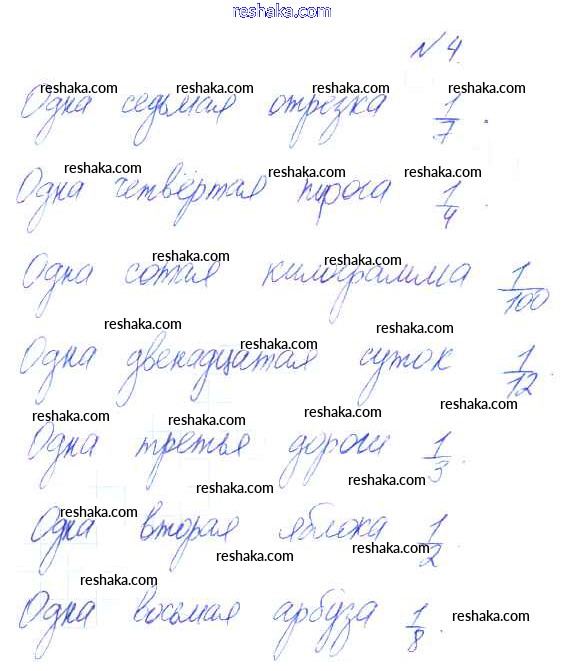 reshaka.com
№4.
reshaka.com reshaka.com reshaka.com
Одна седьмая отрезка 1/7.
reshaka.com reshaka.com reshaka.com
Одна четвёртая пирога 1/4.
reshaka.com reshaka.com
Одна сотая килограмма 1/100
reshaka.com reshaka.com
Одна двенадцатая суток 1/12.
reshaka.com
reshaka.com reshaka.com reshaka.com
Одна третья дороги 1/3.
reshaka.com reshaka.com
Одна вторая яблока 1/2.
reshaka.com reshaka.com
reshaka.com
Одна восьмая арбуза 1/8.
reshaka.com
reshaka.com reshaka.com